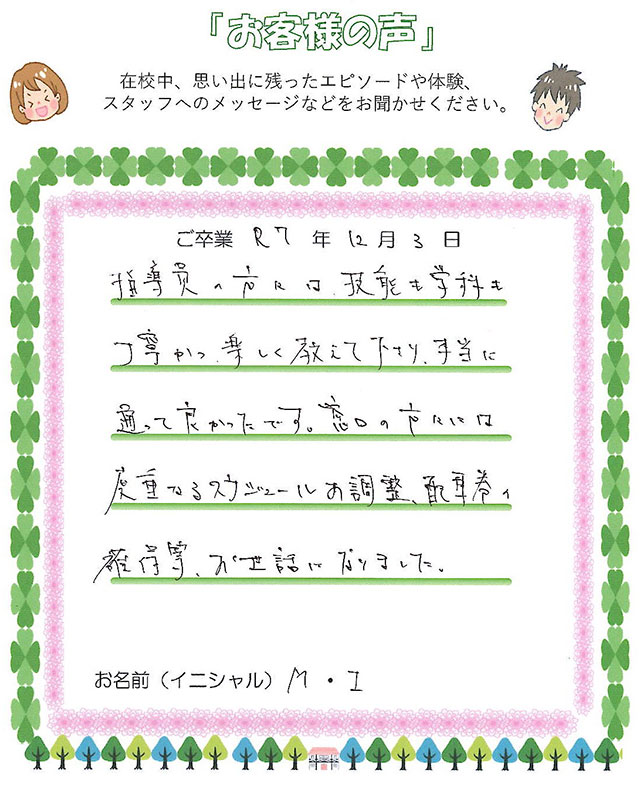 「お客様の声」
在校中、思い出に残ったエピソードや体験、
スタッフへのメッセージなどをお聞かせください。
ご卒業 R7 年 12 月 3 日
指導員の方々は、技能も学科も
丁寧かつ、楽しく教えて下さり、本当に
通って良かったです。窓口の方々には
度重なるスケジュールお調整、配車券の
確保等、お世話になりました。
お名前（イニシャル） M ・ I